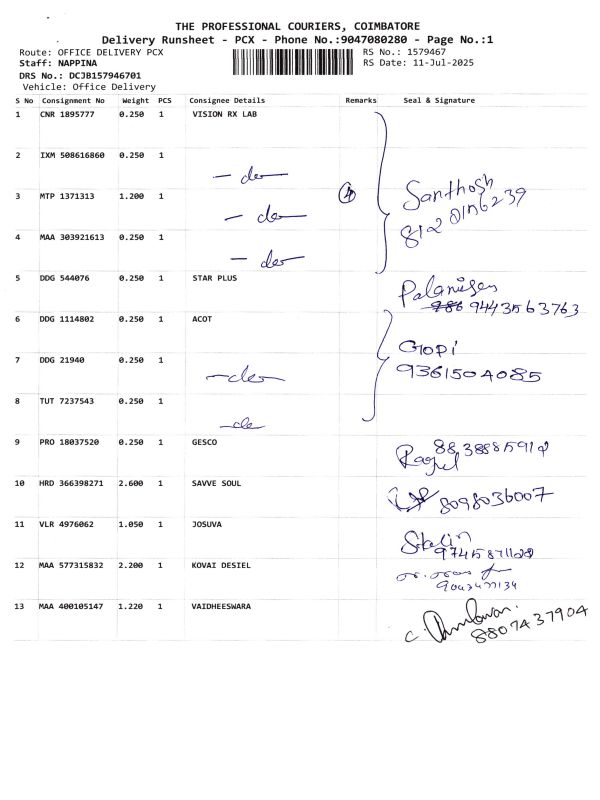 THE PROFESSIONAL COURIERS, COIMBATORE
Delivery Runsheet - PCX - Phone No.:9047080280 - Page No.:1
Route: OFFICE DELIVERY PCX RS No.: 1579467
Staff: NAPPINA RS Date: 11-Jul-2025
DRS No.: DCJB157946701
Vehicle: Office Delivery
S No Consignment No Weight PCS Consignee Details Remarks Seal & Signature
1 CNR 1895777 0.250 1 VISION RX LAB
2 IXM 508616860 0.250 1
3 MTP 1371313 1.200 1 4 Santhosh
4 MAA 303921613 0.250 1
5 DDG 544076 0.250 1 STAR PLUS
9443563763
6 DDG 1114802 0.250 1 ACOT
Gopi
7 DDG 21940 0.250 1 9361504085
8 TUT 7237543 0.250 1
9 PRO 18037520 0.250 1 GESCO
10 HRD 366398271 2.600 1 SAVVE SOUL 8098036007
11 VLR 4976062 1.050 1 JOSUVA Stalin
12 MAA 577315832 2.200 1 KOVAI DESIEL
13 MAA 400105147 1.220 1 VAIDHEESWARA
8807437904